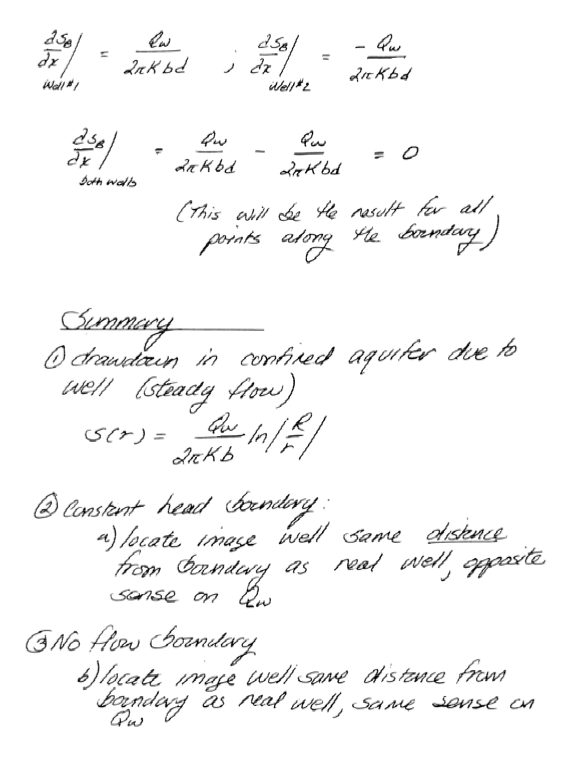 ∂S_B/∂x | Well #1 = Qw / 2πKbd ; ∂S_B/∂x | Well #2 = - Qw / 2πKbd
∂S_B/∂x | Both wells = Qw / 2πKbd - Qw / 2πKbd = 0
(This will be the result for all
points along the boundary)
Summary
① drawdown in confined aquifer due to
well (steady flow)
S(r) = Qw / 2πKb ln | R / r |
② Constant head boundary:
a) locate image well same distance
from boundary as real well, opposite
sense on Qw
③ No flow boundary
b) locate image well same distance from
boundary as real well, same sense on
Qw